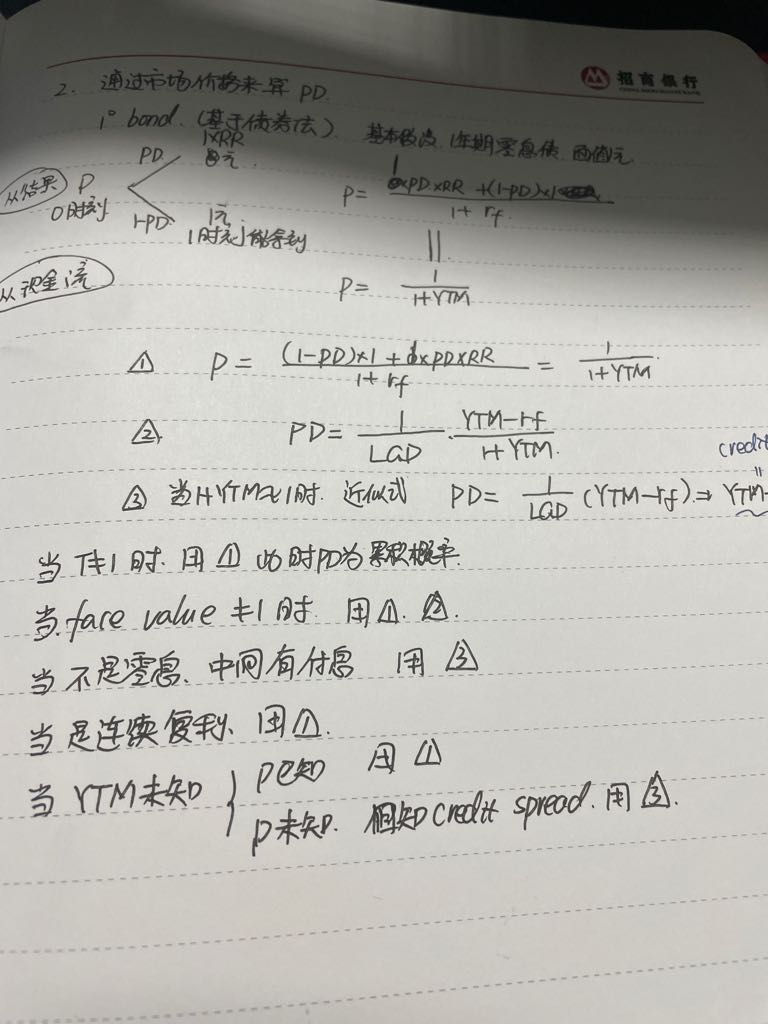 招商银行
2. 通过市场价格来算 PD.
1° bond. (基于债券法) 基本假设 1年期零息债 面值1元
从结果
P
0时刻
PD
1×RR
元
1-PD
1元
1时刻能拿到
P = 1×PD×RR + (1-PD)×1 / 1 + rf
||
P = 1 / 1+YTM
从现金流
① P = (1-PD)×1 + 1×PD×RR / 1 + rf = 1 / 1+YTM
② PD = 1 / LGD · YTM-rf / 1+YTM.
③ 当1+YTM≈1时. 近似式 PD = 1 / LGD (YTM-rf) ⇒ YTM-
credit
=
当 T≠1 时. 用 ① 此时PD为累积概率.
当 face value ≠1 时. 用 ①. ②.
当 不是零息、中间有付息 用 ③
当 是连续复利、用 ①.
当 YTM未知 { P已知 用 ①
P未知. 但知 credit spread. 用 ③.